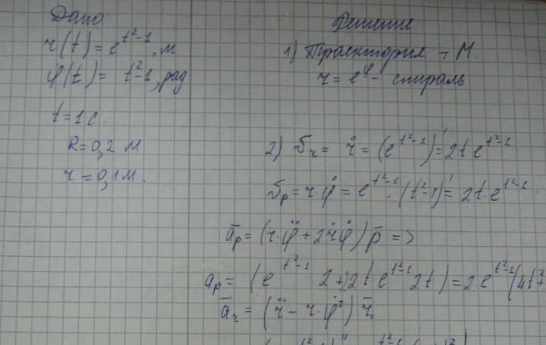 Дано
r(t) = e^{t²-1}, м
φ(t) = t²-1, рад
t = 1 с.
R = 0,2 м
r = 0,1 м.
Решение
1) Траектория – М
r = e^φ - спираль
2) υ_r = ṙ = (e^{t²-1})' = 2t e^{t²-1}
υ_p = r φ̇ = e^{t²-1} · (t²-1)' = 2t · e^{t²-1}
ā_p = (r · φ̈ + 2ṙφ̇) p̄ =>
a_p = (e^{t²-1} 2 + 2 · 2t e^{t²-1} 2t) = 2e^{t²-1} (4t²
ā_r = (r̈ - r · φ̇²) r̄